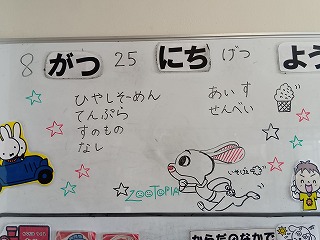 8 がつ 25 にち げつ よう
ひやしそーめん
てんぷら
すのもの
なし
あいす
せんべい
ZOOTOPIA
からだのなかで